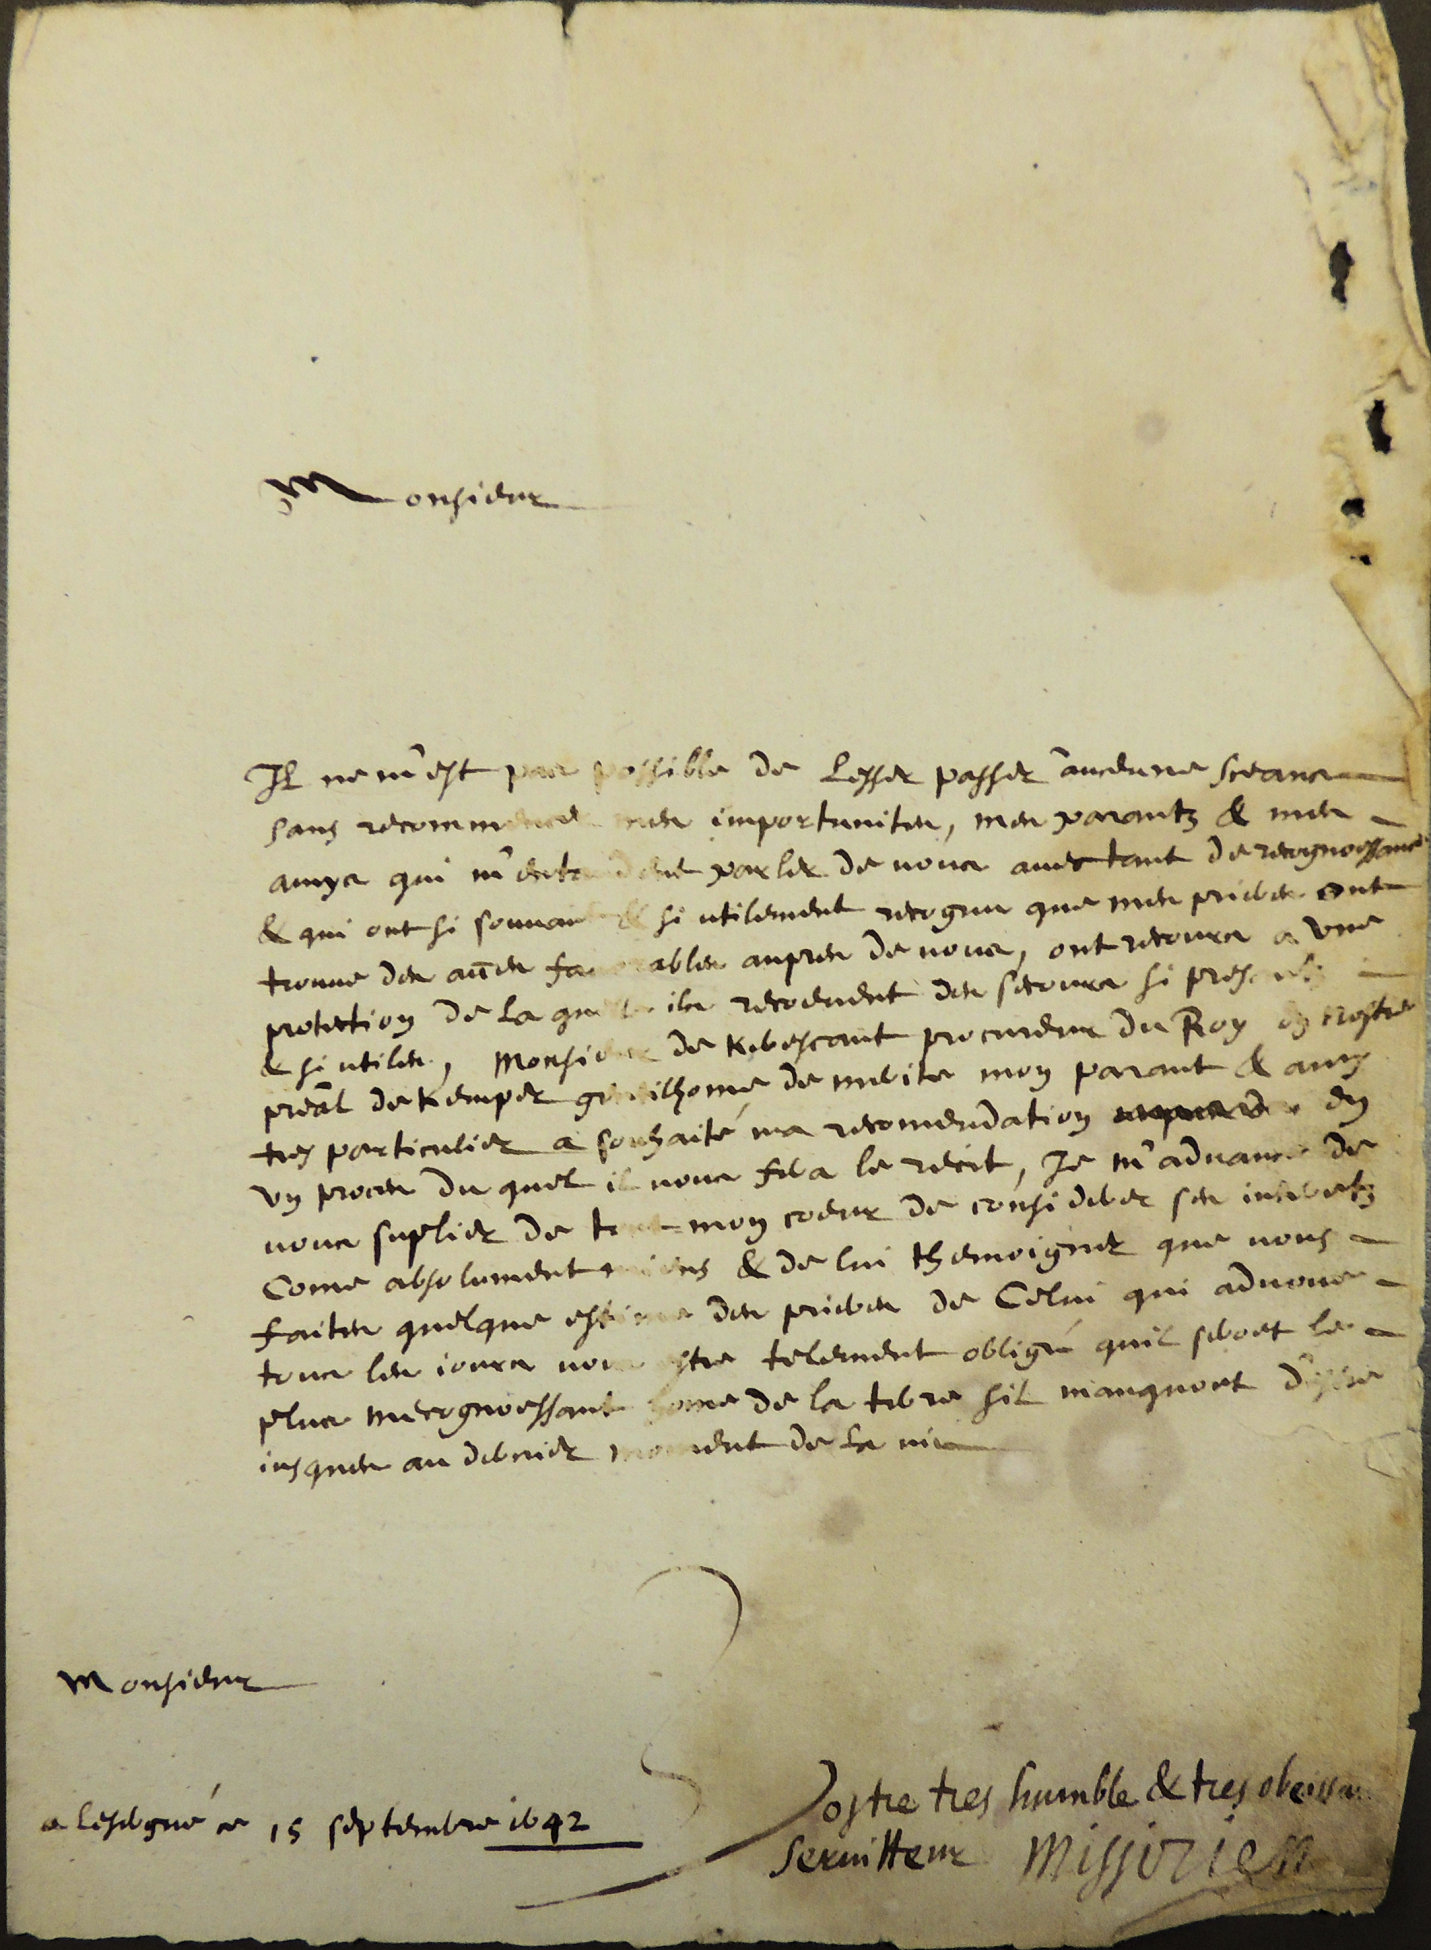 Monsieur
Il ne m'est pas possible de lesser passer aucune sceance
sans recommencer mes importunites, mes parantz & mes
amys qui m'entendent parler de vous avec tant de recognoessance
& qui ont si souvant & si utilement recognu que mes prieres ont
trouve des favorables aupres de vous, ont recours a une
protection de laquelle ils recoevent des secours si presantz
& si utiles, Monsieur de K/bescant procureur du Roy en nostre
preal de Kemper gentilhome de merite mon parant & amy
tres particulier a souhaité ma recomendation en
un proces du quel il vous fera le recit, Je m'advance de
vous suplier de tout mon coeur de considerer ses interetz
Come absolument miens & de lui themoigner que vous
faites quelque estime des prieres de Celui qui advoue
tous les iours vous estre telement obligé quil seroet le
plus mecognoessant home de la terre sil manquoet d'estre
iusques au dernier moment de la vie
Monsieur
a Lesergué ce 15 septembre 1642
Vostre tres humble & tres obeissa
servitteur Missirien